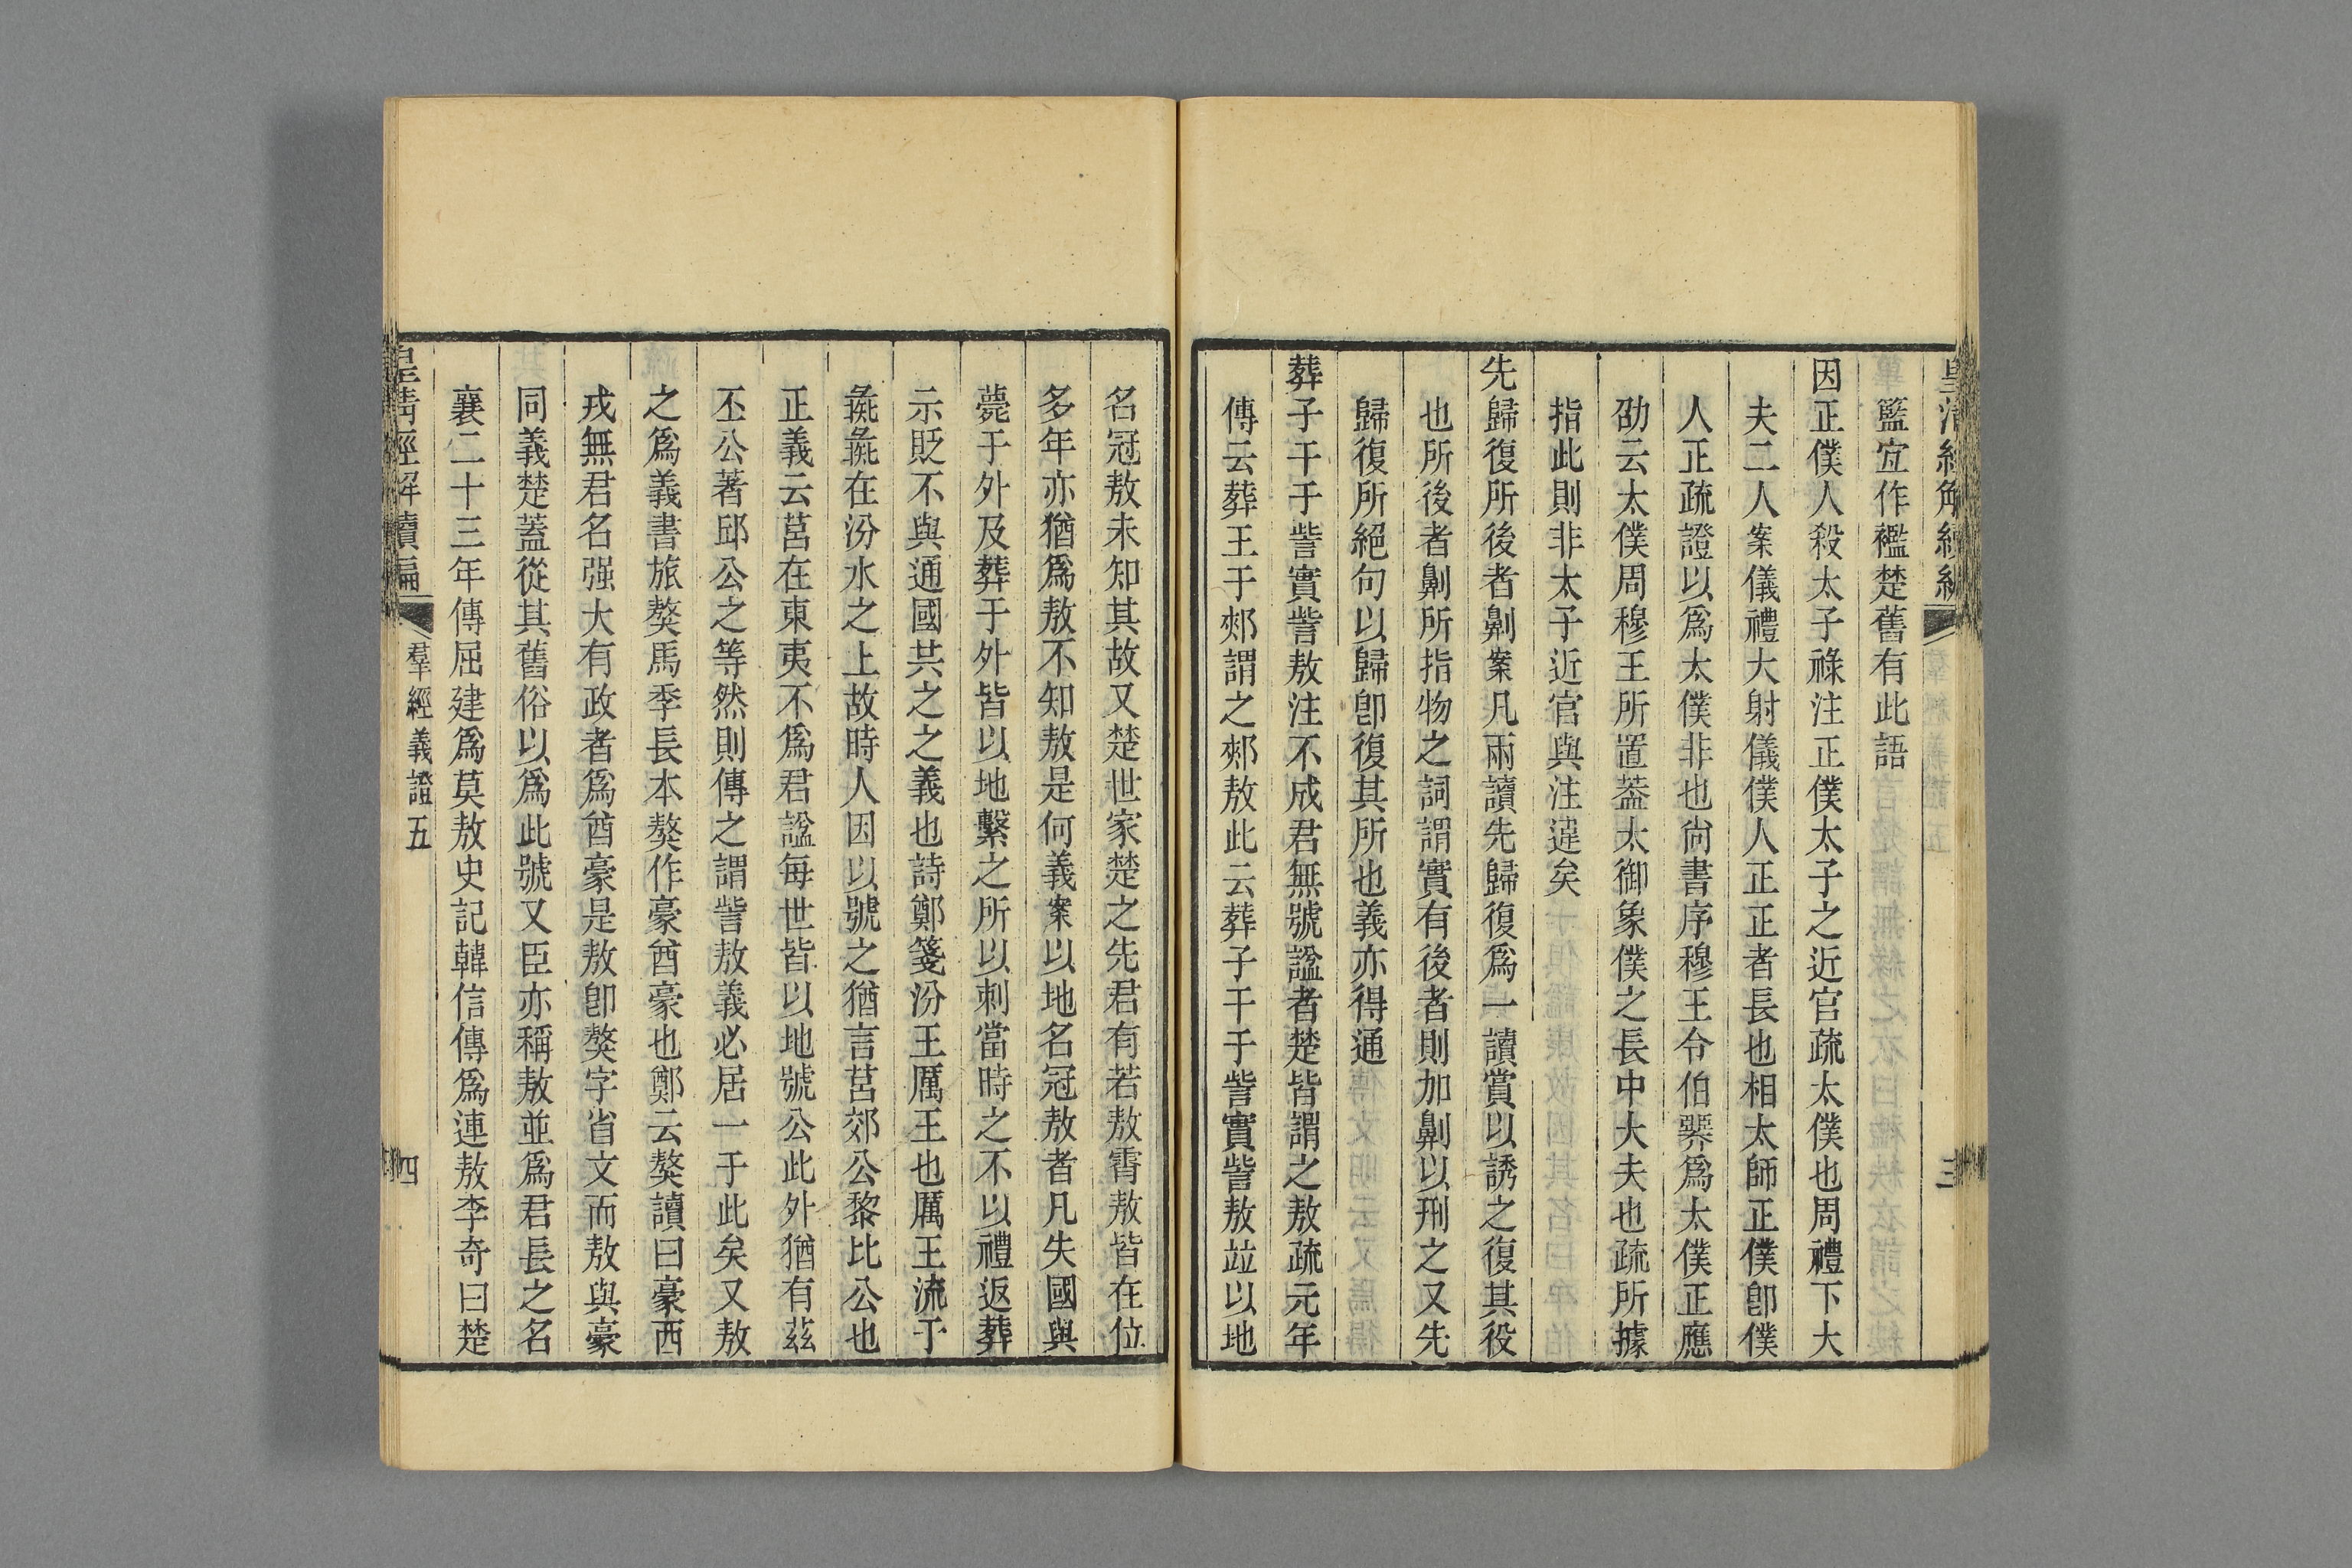 皇清經解續編
三
籃宜作襤楚舊有此語
因正僕人殺太子祿注正僕太子之近官疏太僕也周禮下大
夫二人案儀禮大射儀僕人正正者長也相太師正僕卽僕
人正疏證以爲太僕非也尙書序穆王令伯臩爲太僕正應
劭云太僕周穆王所置葢太御象僕之長中大夫也疏所據
指此則非太子近官與注違矣
先歸復所後者劓案凡兩讀先歸復爲一讀賞以誘之復其役
也所後者劓所指物之詞謂實有後者則加劓以刑之又先
歸復所絕句以歸卽復其所也義亦得通
葬子干于訾實訾敖注不成君無號謚者楚皆謂之敖疏元年
傳云葬王于郟謂之郟敖此云葬子干于訾實訾敖竝以地
名冠敖未知其故又楚世家楚之先君有若敖霄敖皆在位
多年亦猶爲敖不知敖是何義案以地名冠敖者凡失國與
薨于外及葬于外皆以地繫之所以刺當時之不以禮返葬
示貶不與通國共之之義也詩鄭箋汾王厲王也厲王流于
彘彘在汾水之上故時人因以號之猶言莒郊公黎比公也
正義云莒在東夷不爲君謚每世皆以地號公此外猶有茲
丕公著邱公之等然則傳之謂訾敖義必居一于此矣又敖
之爲義書旅獒馬季長本獒作豪酋豪也鄭云獒讀曰豪西
戎無君名强大有政者爲酋豪是敖卽獒字省文而敖與豪
同義楚蓋從其舊俗以爲此號又臣亦稱敖並爲君長之名
襄二十三年傳屈建爲莫敖史記韓信傳爲連敖李奇曰楚
皇清經解續編
羣經義證五
四